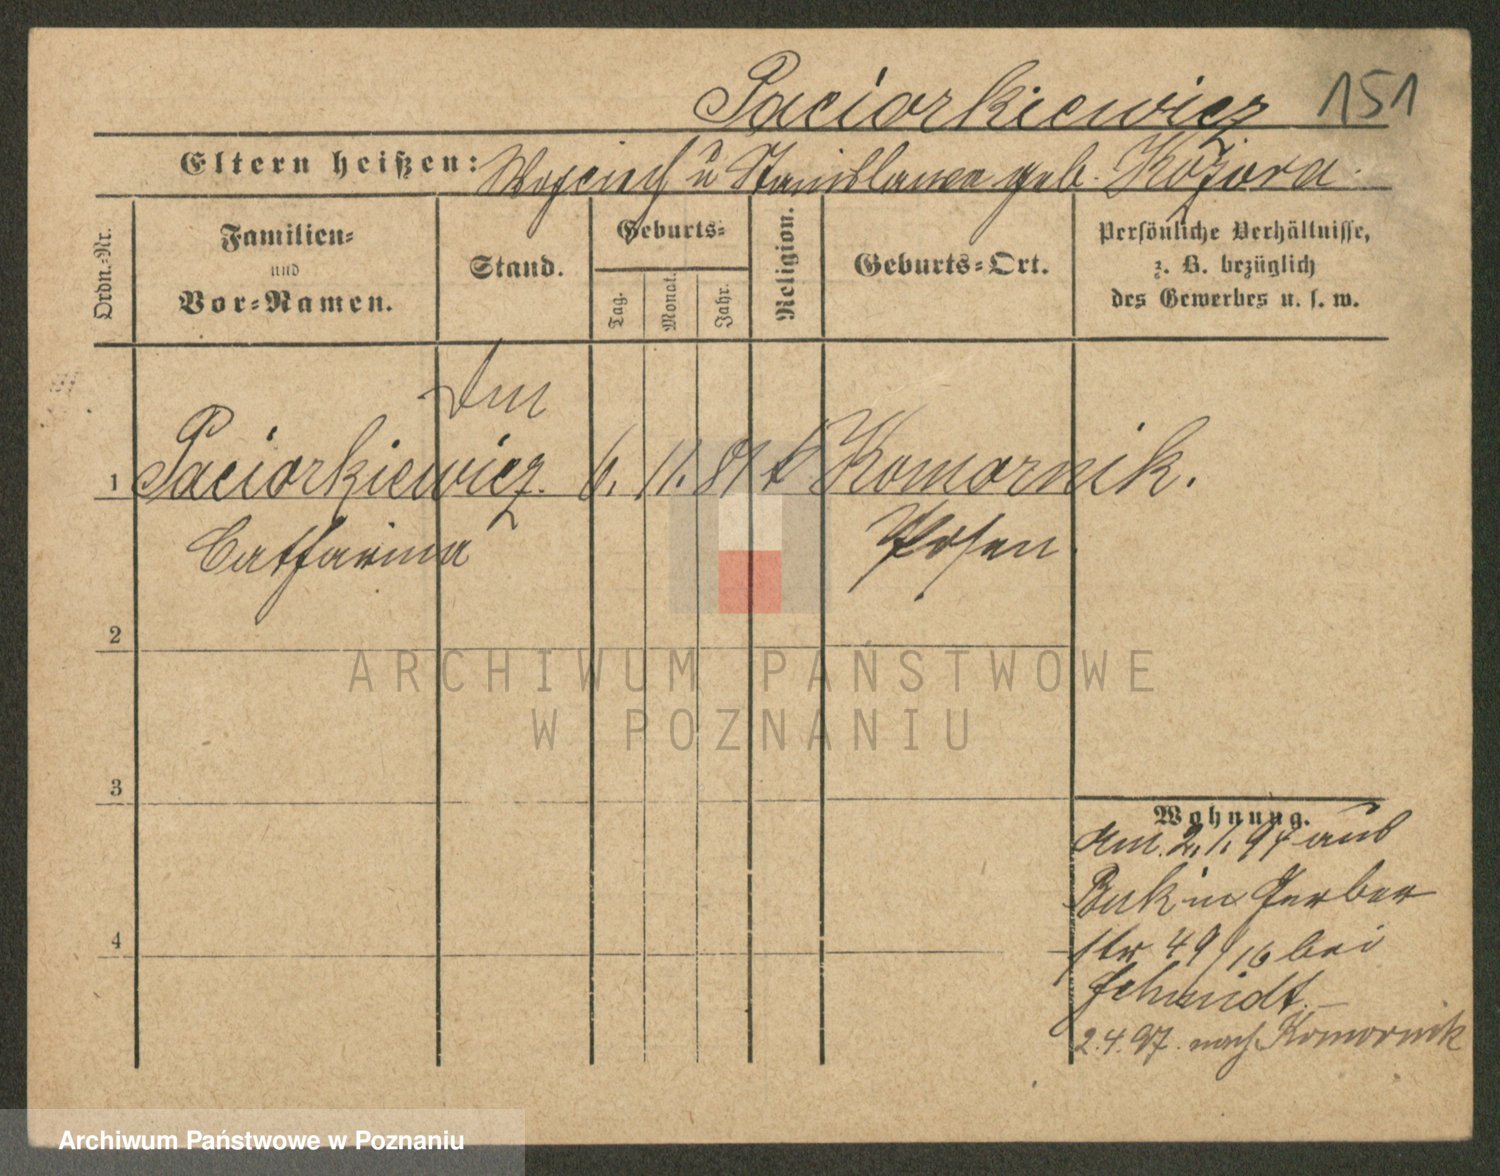 Paciorkiewicz 151
Eltern heißen: Wojciech u Stanislawa geb. Kozora
Ordn.-Nr.
Familien-
und
Vor-Namen.
Stand.
Geburts-
Tag.
Monat.
Jahr.
Religion.
Geburts-Ort.
Persönliche Verhältnisse,
z. B. bezüglich
des Gewerbes u. s. w.
1 Paciorkiewicz. 6. 11. 81 k Komornik.
Catharina Posen.
2
3
4
Wohnung.
am 2. 1. 97 aus
Buk in Gerber
str 49/16 bei
Schmidt.
2.4.97. nach Komornik
ARCHIWUM PAŃSTWOWE
W POZNANIU
Archiwum Państwowe w Poznaniu